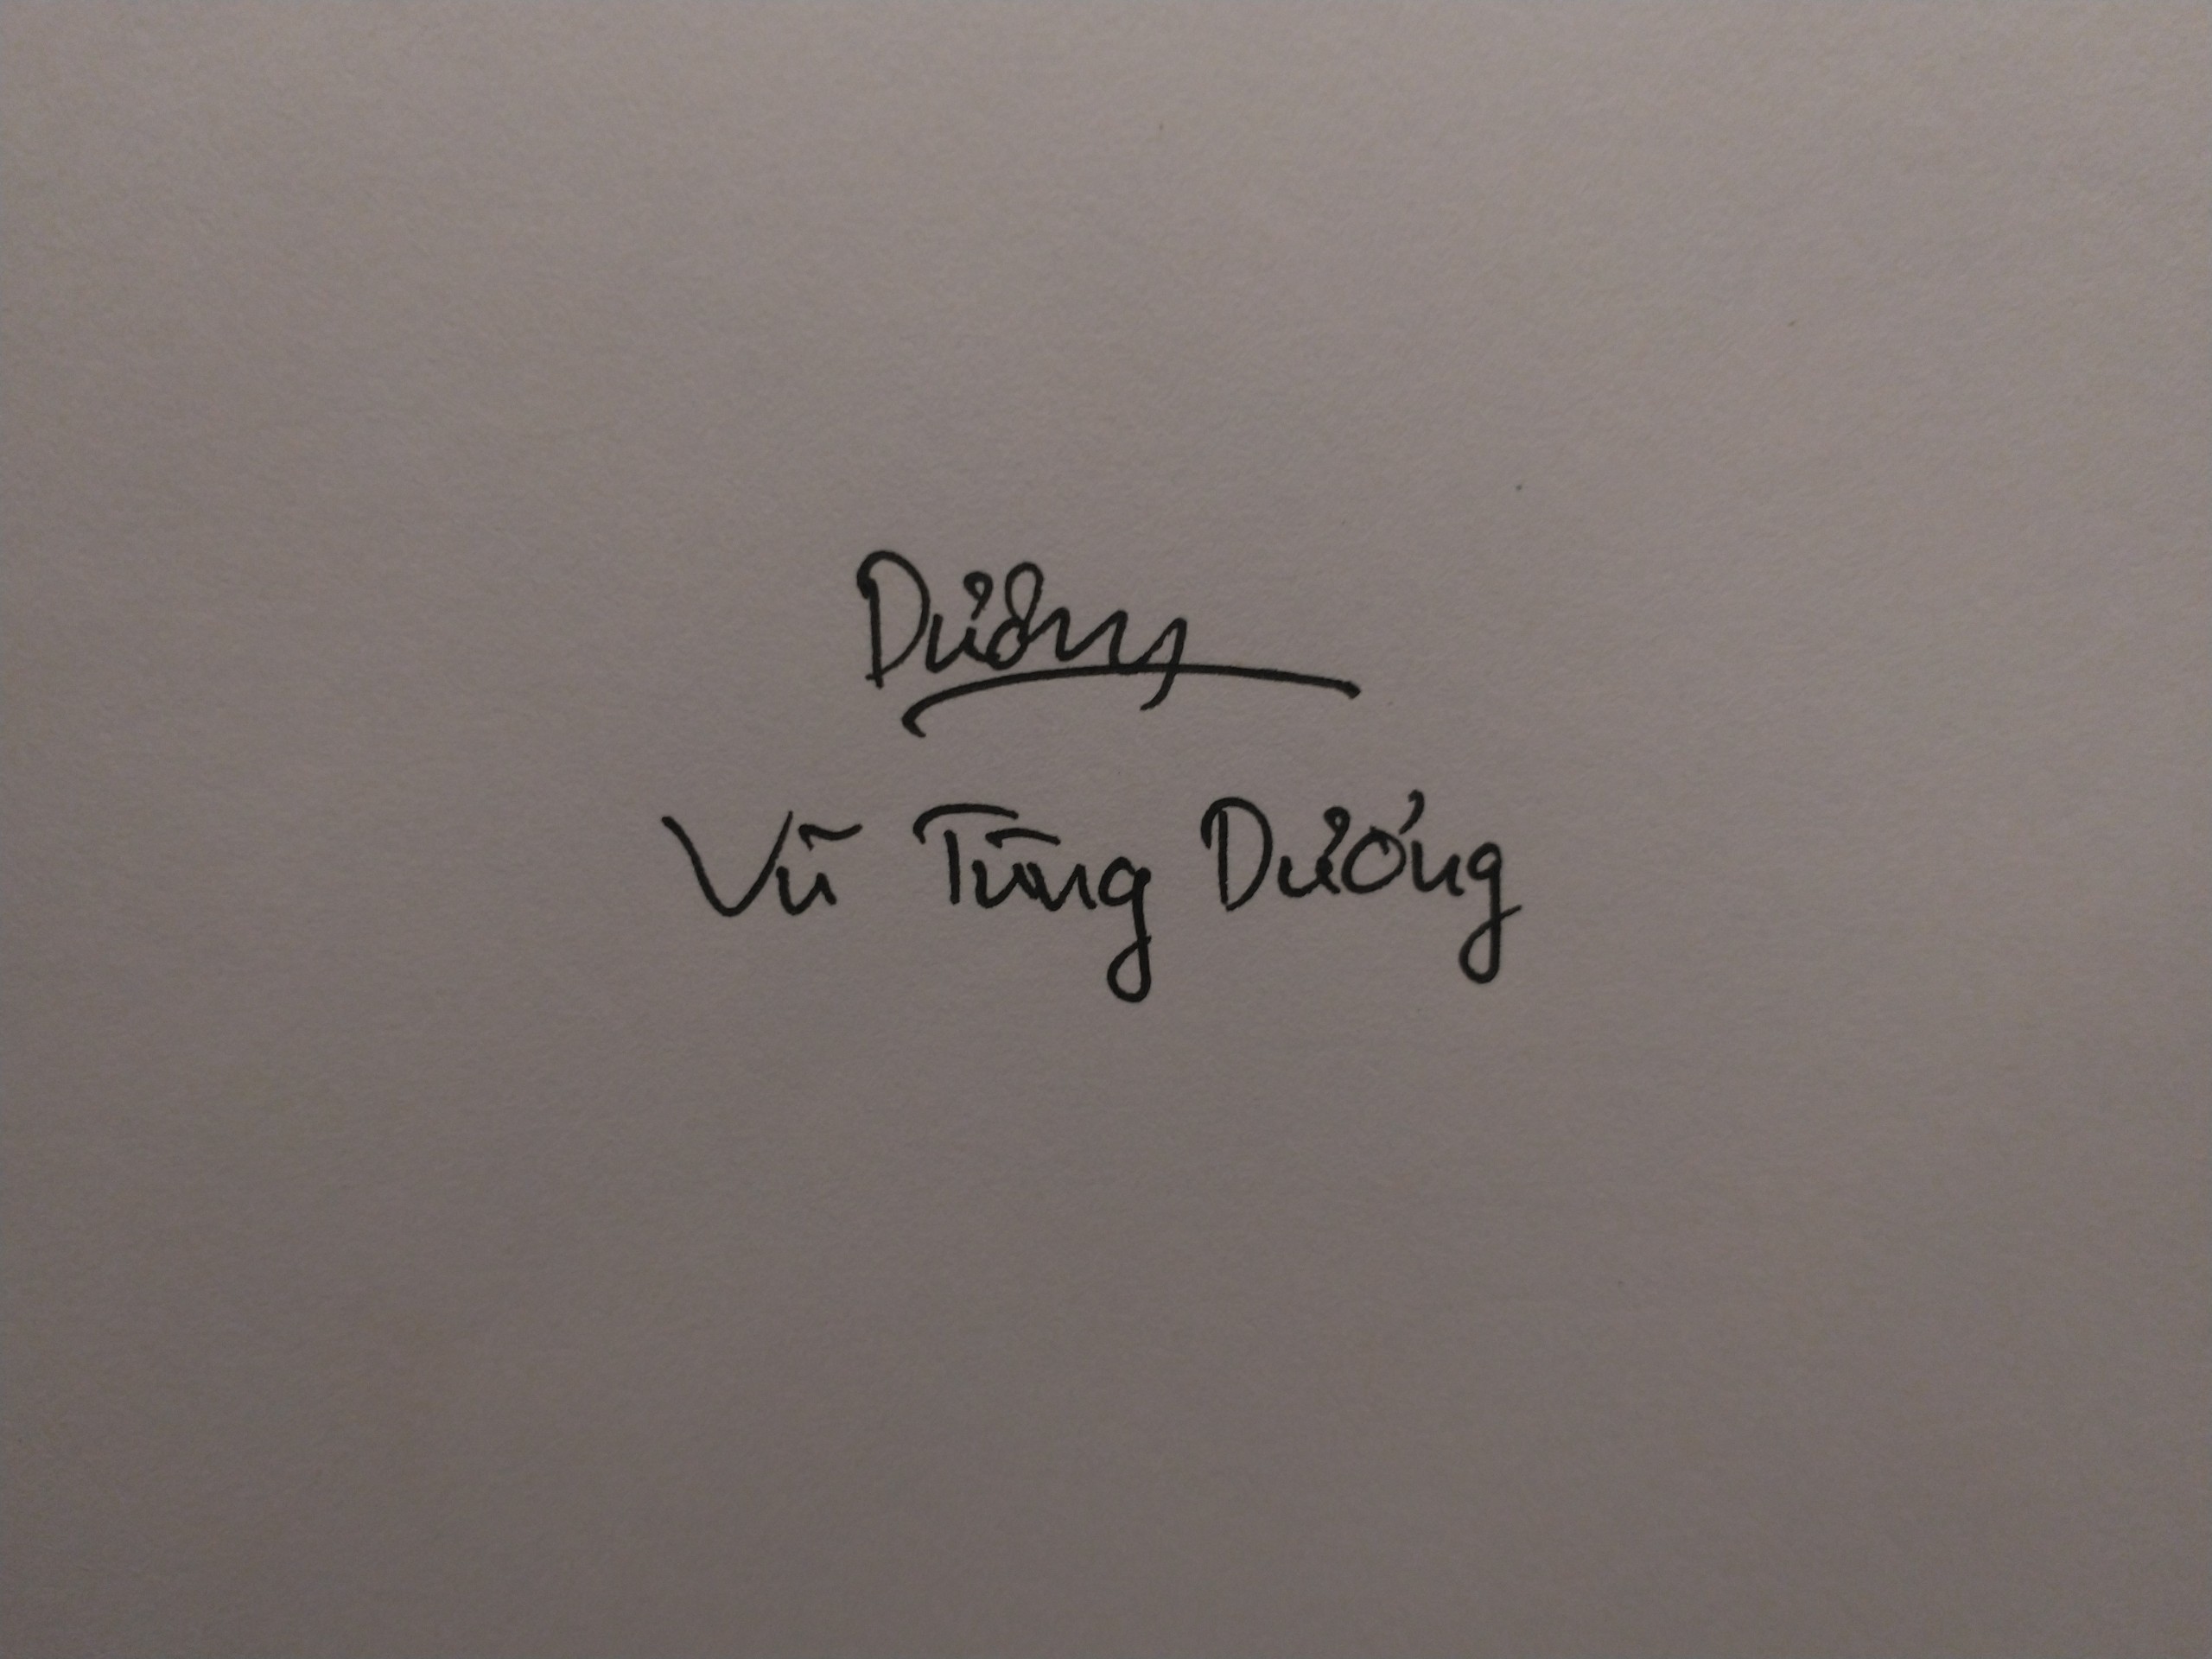 Dương
Vũ Tùng Dương